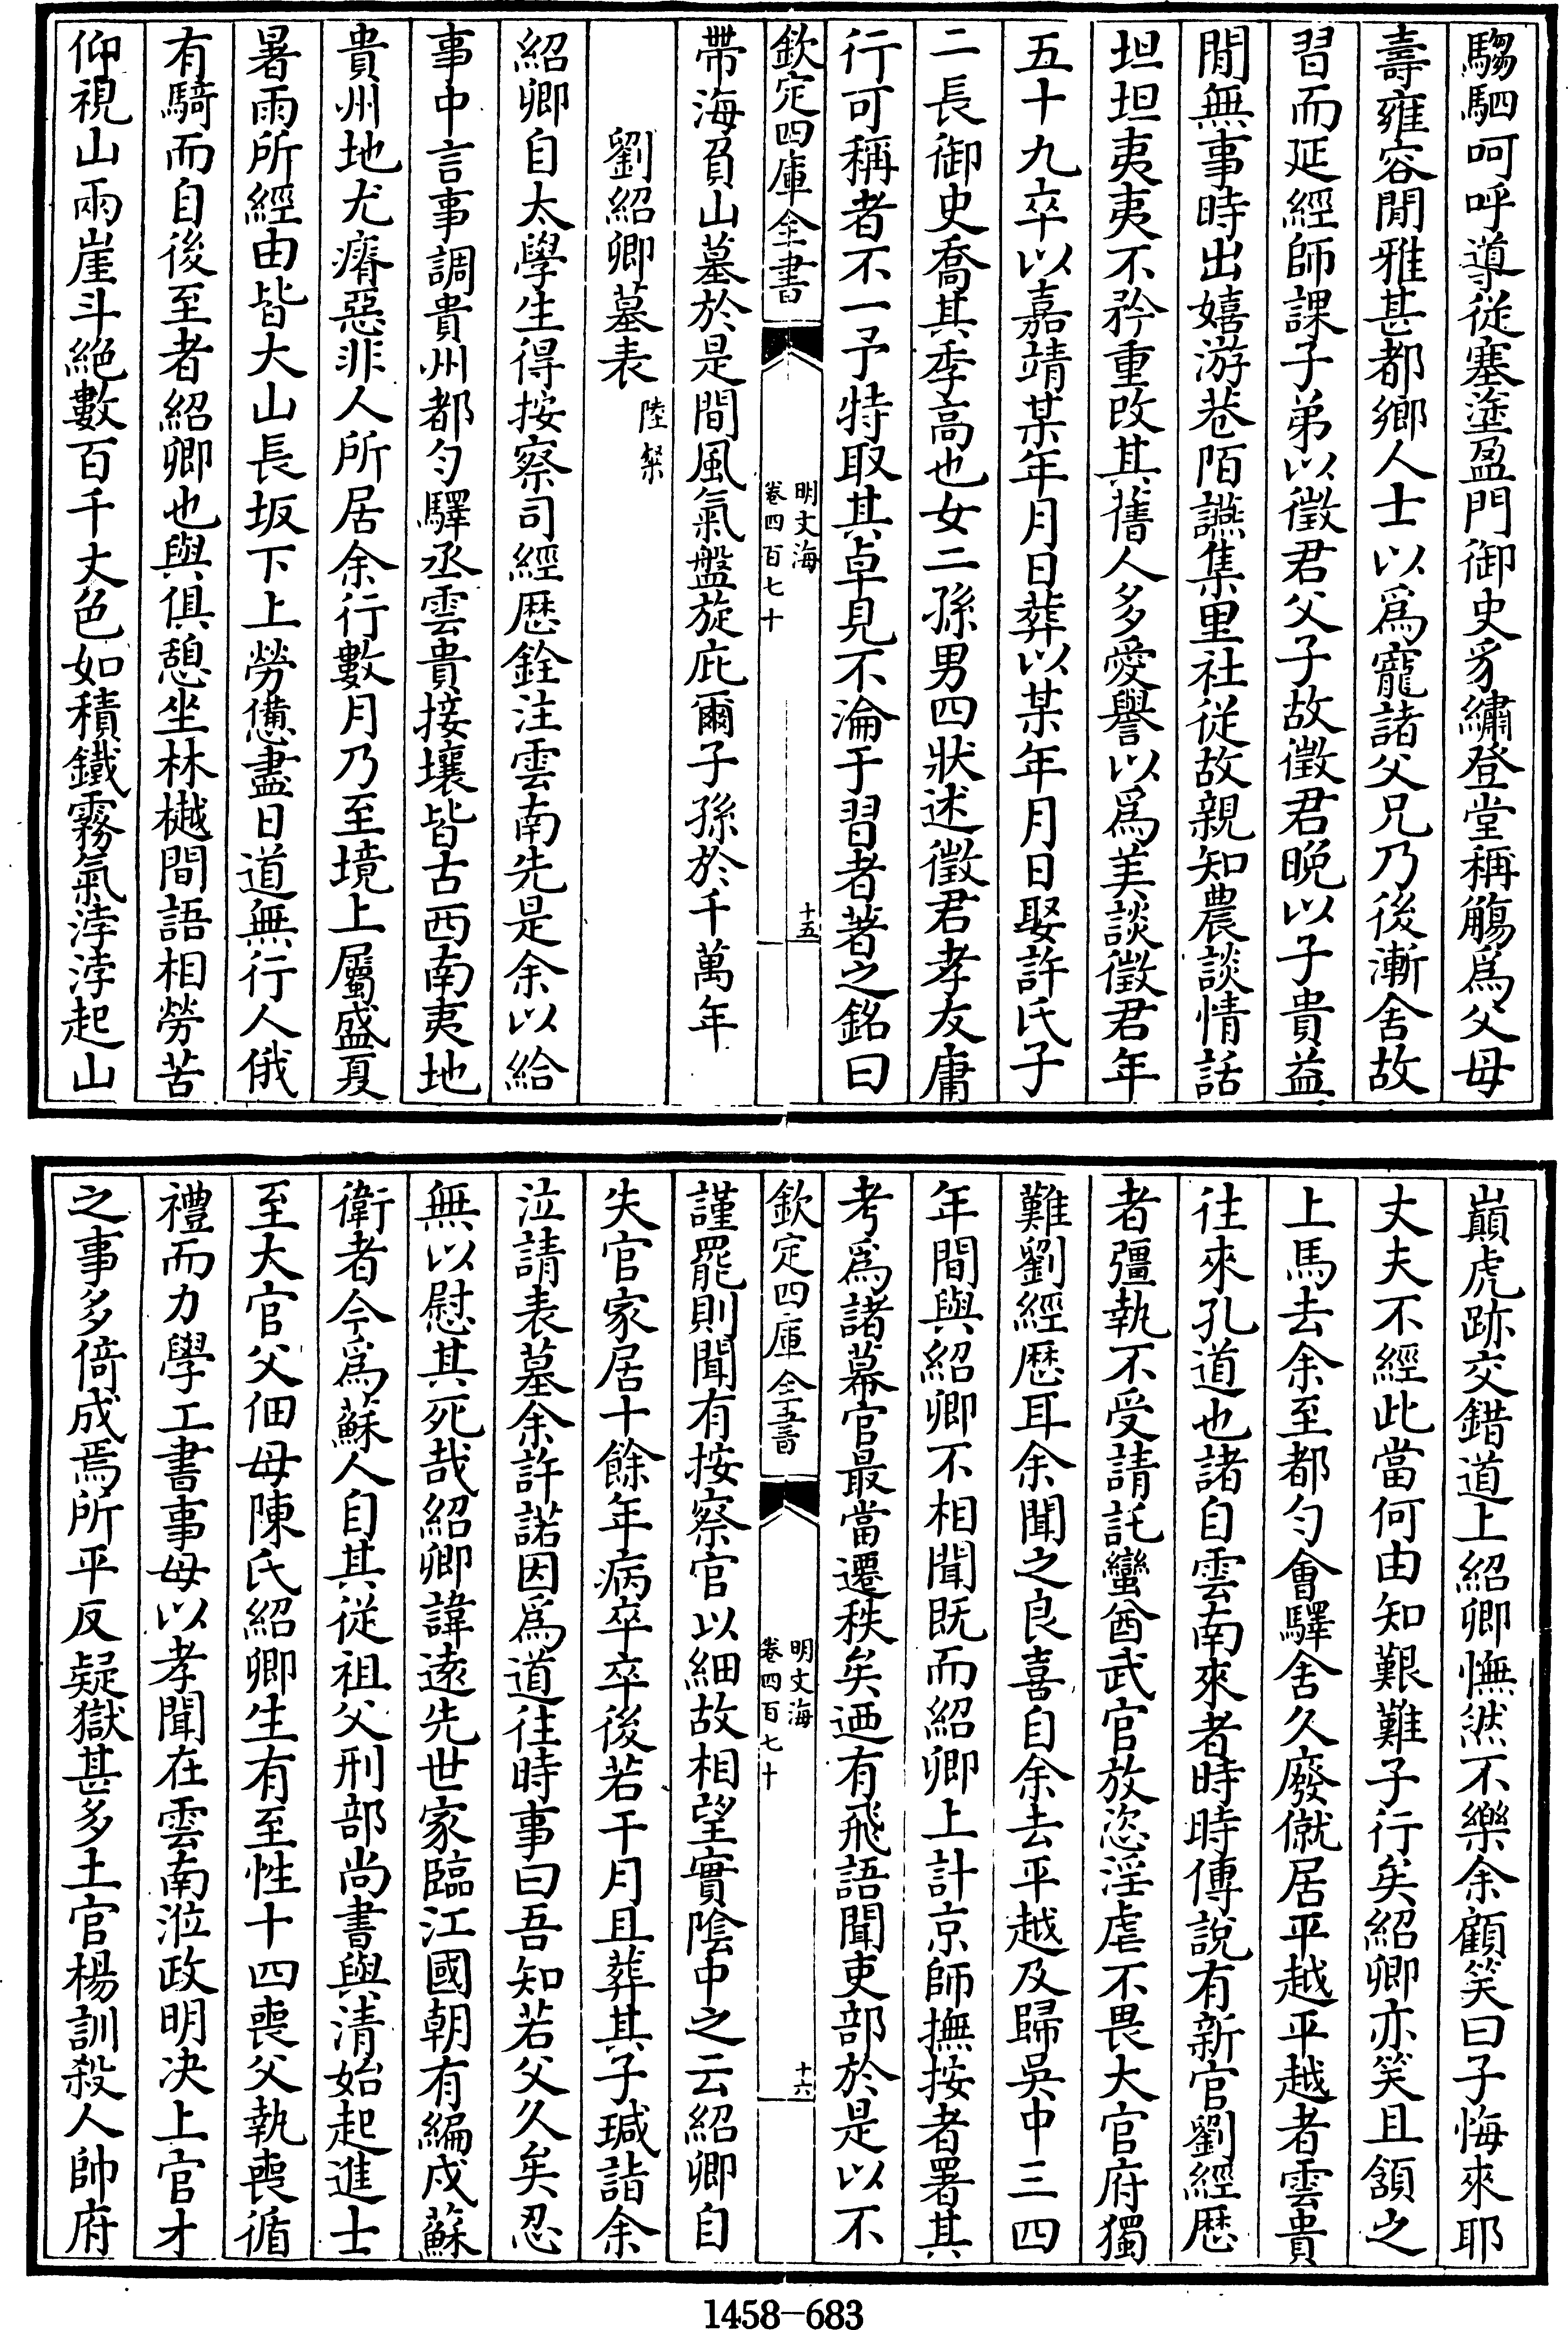 騶駟呵呼導從塞塗盈門御史豸繡登堂稱觴爲父母
壽雍容閒雅甚都鄉人士以爲寵諸父兄乃後漸舍故
習而延經師課子弟以徵君父子故徵君晚以子貴益
閒無事時出嬉游巷陌讌集里社從故親知農談情話
坦坦夷夷不矜重改其舊人多愛譽以爲美談徵君年
五十九卒以嘉靖某年月日葬以某年月日娶許氏子
二長御史喬其季高也女二孫男四狀述徵君孝友庸
行可稱者不一予特取其卓見不淪于習者著之銘曰
欽定四庫全書
明文海
卷四百七十
十五
帶海負山墓於是間風氣盤旋庇爾子孫於千萬年
劉紹卿墓表 陸粲
紹卿自太學生得按察司經歴銓注雲南先是余以給
事中言事調貴州都勻驛丞雲貴接壤皆古西南夷地
貴州地尤瘠惡非人所居余行數月乃至境上屬盛夏
暑雨所經由皆大山長坂下上勞憊盡日道無行人俄
有騎而自後至者紹卿也與俱憩坐林樾間語相勞苦
仰視山兩崖斗絶數百千丈色如積鐵霧氣浡浡起山
巔虎跡交錯道上紹卿憮然不樂余顧笑曰子悔來耶
丈夫不經此當何由知艱難子行矣紹卿亦笑且頷之
上馬去余至都勻會驛舍久廢僦居平越平越者雲貴
往來孔道也諸自雲南來者時時傳說有新官劉經歴
者彊執不受請託蠻酋武官放恣淫虐不畏大官府獨
難劉經歴耳余聞之良喜自余去平越及歸吳中三四
年間與紹卿不相聞既而紹卿上計京師撫按者署其
考爲諸幕官最當遷秩矣迺有飛語聞吏部於是以不
欽定四庫全書
明文海
卷四百七十
十六
謹罷則聞有按察官以細故相望實陰中之云紹卿自
失官家居十餘年病卒卒後若干月且葬其子瑊詣余
泣請表墓余許諾因爲道往時事曰吾知若父久矣忍
無以慰其死哉紹卿諱遠先世家臨江國朝有編戍蘇
衛者今爲蘇人自其從祖父刑部尚書與清始起進士
至大官父佃母陳氏紹卿生有至性十四喪父執喪循
禮而力學工書事母以孝聞在雲南涖政明决上官才
之事多倚成焉所平反疑獄甚多土官楊訓殺人帥府
1458-683